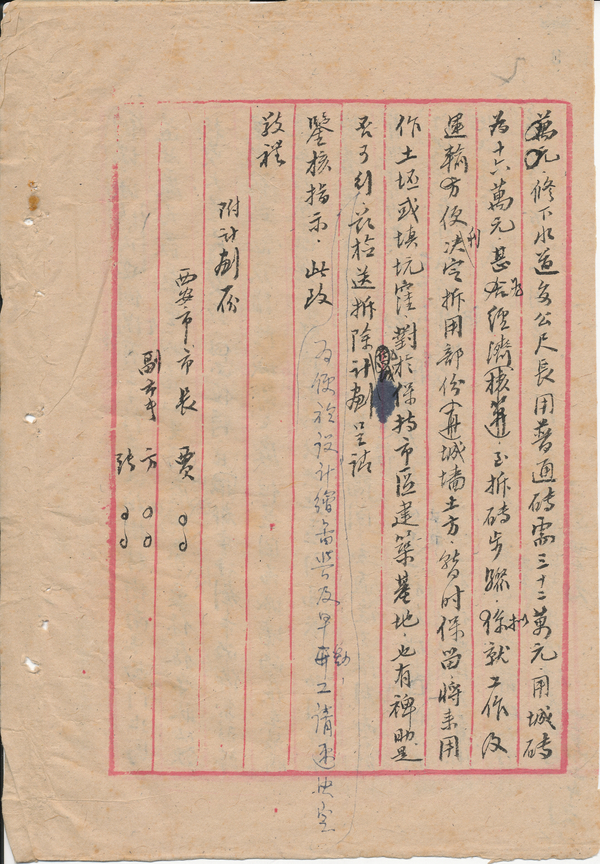 萬元，修下水道每公尺長用普通磚需三十二萬元，用城磚
為十六萬元，甚為經濟核算，至拆磚步驟，擬就工作及
運輸方便利決定拆用部份，城墙土方，暫時保留，將来用
作土坯或填坑窪，對於保持市區建築基地，也有裨助是
否可行，茲檢送拆除計劃呈請
鑒核指示，此致
為便於設計繪圖與及早動工請速決定
敬禮
附計劃份
西安市市長 賈
副市長 方
張